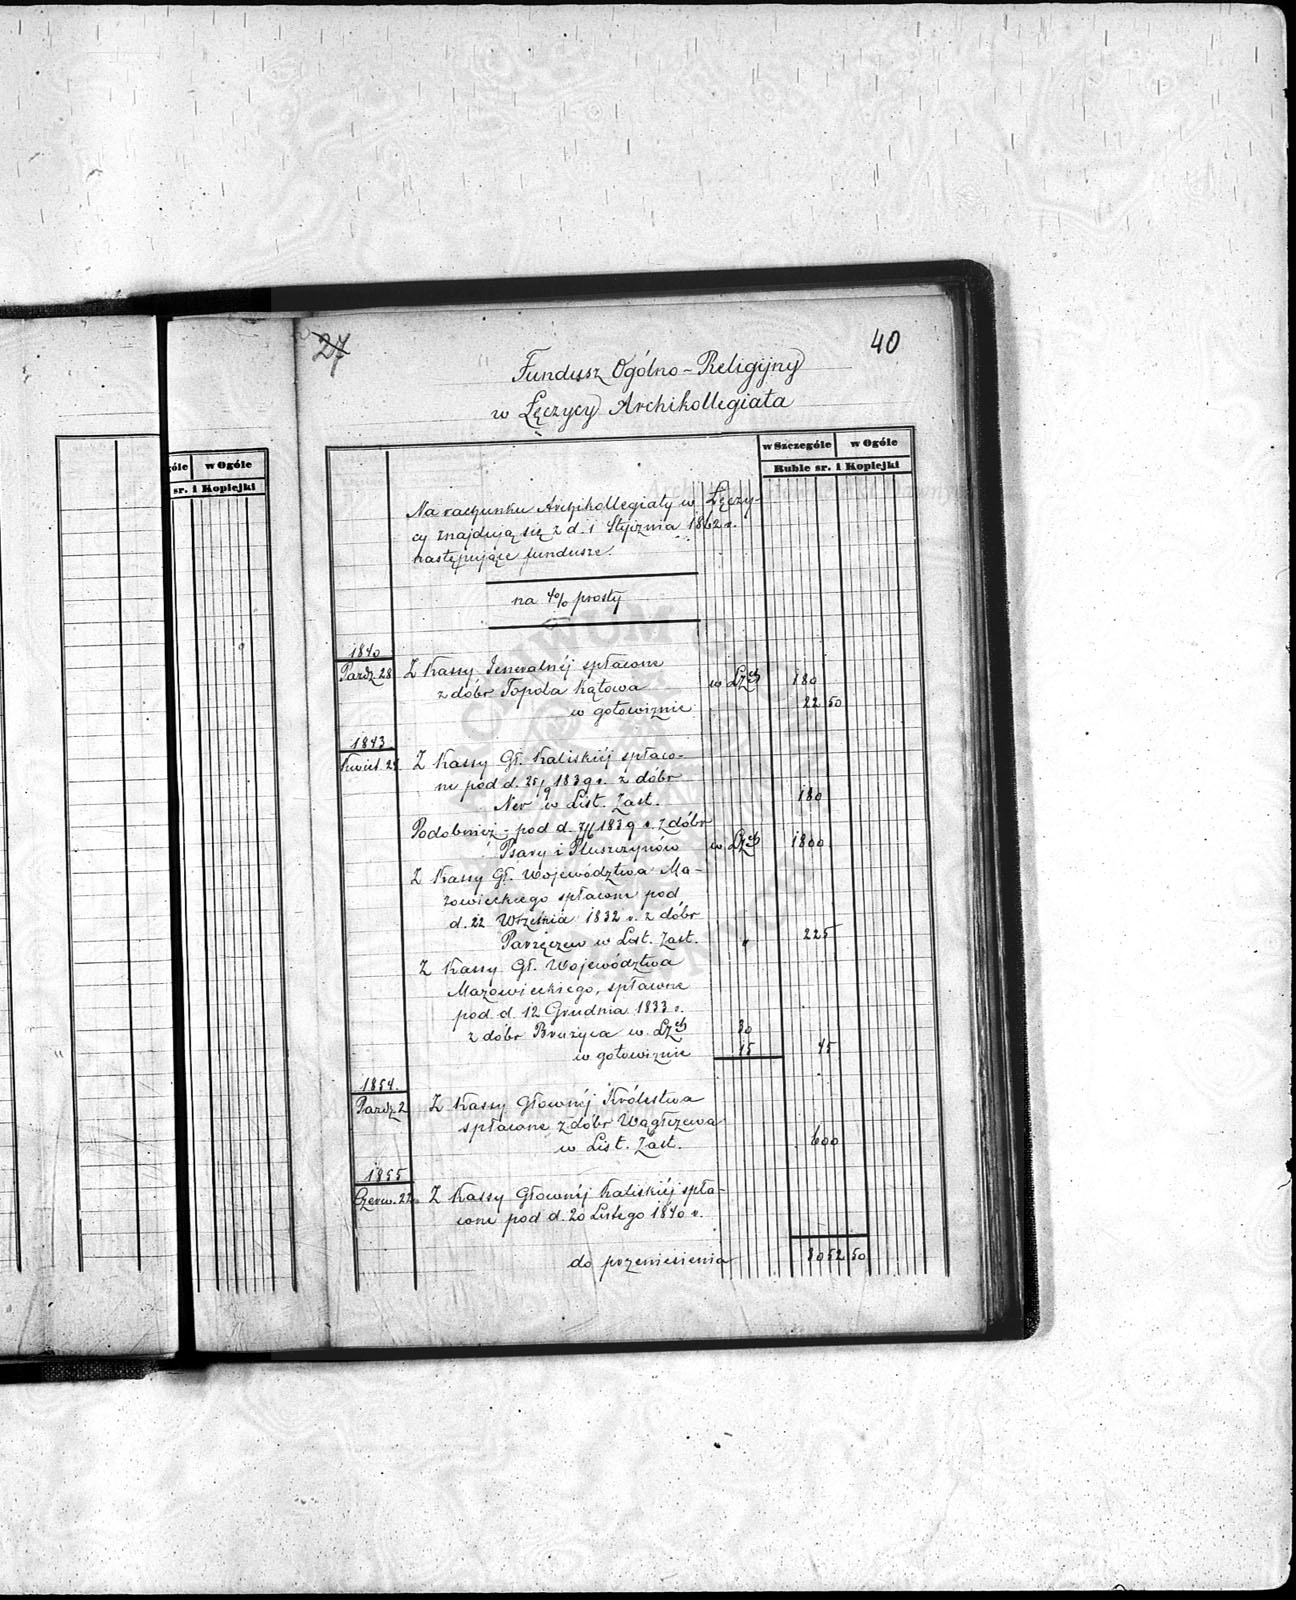 27
40
Fundusz Ogólno-Religijny
w Łęczycy Archikollegiata
góle w Ogóle
sr. i Kopiejki
w Szczególe w Ogóle
Ruble sr. i Kopiejki
Na rachunku Archikollegiaty w Łęczy-
cy znajdują się z d. 1 Stycznia 1862 r.
następujące fundusze.
na 4% prosty
1840
Paźdz. 28 Z Kassy Jeneralnéj spłacone
z dóbr Topola Kątowa w Lzch 180
w gotowiznie 22 50
1843
Kwiet. 28 Z Kassy Gł. Kaliskiéj spłaco-
ne pod d. 25/9 1839 r. z dóbr
Ner w List. Zast. 180
Podobnież - pod d. 1839 r. z dóbr
Psary i Pluszczynów w Lzch 1800
Z Kassy Gł. Województwa Ma-
zowieckiego spłacone pod
d. 22 Września 1832 r. z dóbr
Parzęczew w List. Zast. " 225
Z Kassy Gł. Województwa
Mazowieckiego, spłacone
pod d. 12 Grudnia 1833 r.
z dóbr Brużyca w Lzch 30
w gotowiznie 15 45
1854.
Paźdz. 2 Z Kassy Głownéj Królestwa
spłacone z dóbr Wągłczewa
w List. Zast. 600
1855
Czerw. 22 Z Kassy Głownéj Kaliskiéj spła-
cone pod d. 20 Lutego 1840 r.
do przeniesienia 3052 50